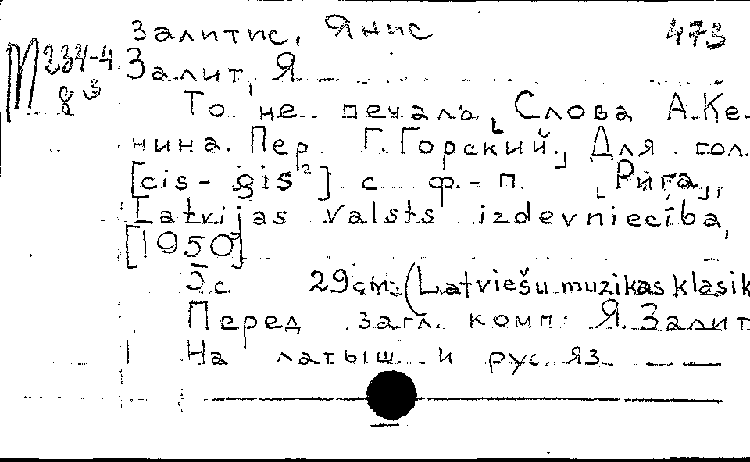 Залитис, Янис 473
М 234-4 Залит, Я
83
То не печаль. Слова А. Ке-
нина. Пер. Г. Горский. Для гол.
[cis - gis²] с ф.-п. Рига,
Latvijas valsts izdevniecība,
[1950]
5 с. 29 см. (Latviešu muzikas klasik
Перед загл. комп: Я. Залит
На латыш. и рус. яз.